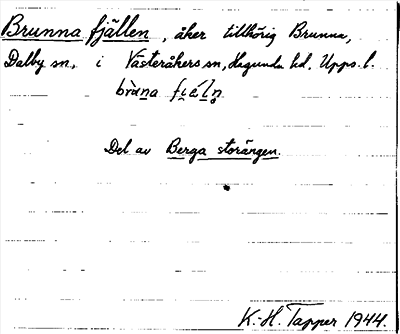 Brunna fjällen, åker tillhörig Brunna,
Dalby sn, i Västeråkers sn, Hagunda hd. Upps. l.
Del av Berga storängen.
K.-H. Tapper 1944.